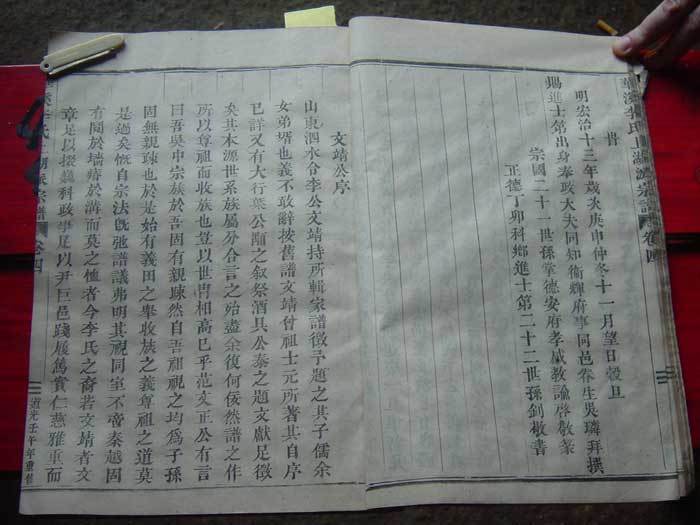 華溪李氏上湖派宗譜 卷四
旹
明宏治十三年歲次庚申仲冬十一月望日穀旦
賜進士第出身奉政大夫同知衞輝府事同邑眷生吳璘拜撰
崇國二十一世孫掌德安府孝感教諭啓敬篆
正德丁卯科鄉進士第二十二世孫釗敬書
文靖公序
山東泗水令李公文靖持所輯家譜徵予題之其子儒余
女弟壻也義不敢辭按舊譜文靖曾祖士元所著其自序
已詳又有大行葉公顒之叙祭酒貝公泰之題文獻足徵
矣其本源世系族屬分合言之始盡余復何俟然譜之作
所以尊祖而收族也豈以世胄相高已乎范文正公有言
曰吾吳中宗族於吾固有親踈然自吾祖視之均爲子孫
固無親踈也於是始有義田之舉收族之義尊祖之道莫
是過矣慨自宗法旣弛譜議弗明其視同室不啻秦越固
有閱於墻瘠於溝而莫之恤者今李氏之裔若文靖者文
章足以掇巍科政事足以尹巨邑踐履篤實仁慈雅重而
氏 派宗譜 卷四
道光壬午年重修